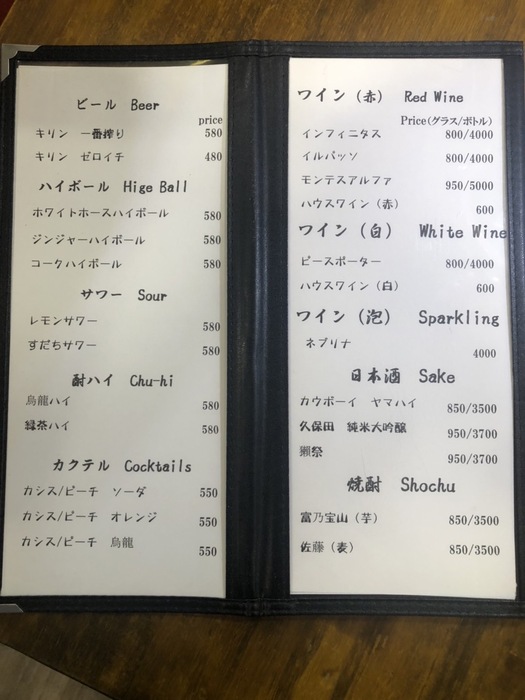 ビール Beer
price
キリン 一番搾り 580
キリン ゼロイチ 480
ハイボール Hige Ball
ホワイトホースハイボール 580
ジンジャーハイボール 580
コークハイボール 580
サワー Sour
レモンサワー 580
すだちサワー 580
酎ハイ Chu-hi
烏龍ハイ 580
緑茶ハイ 580
カクテル Cocktails
カシス/ピーチ ソーダ 550
カシス/ピーチ オレンジ 550
カシス/ピーチ 烏龍 550
ワイン（赤） Red Wine
Price(グラス/ボトル)
インフィニタス 800/4000
イルパッソ 800/4000
モンテスアルファ 950/5000
ハウスワイン（赤） 600
ワイン（白） White Wine
ピースポーター 800/4000
ハウスワイン（白） 600
ワイン（泡） Sparkling
ネブリナ 4000
日本酒 Sake
カウボーイ ヤマハイ 850/3500
久保田 純米大吟醸 950/3700
獺祭 950/3700
焼酎 Shochu
富乃宝山（芋） 850/3500
佐藤（麦） 850/3500